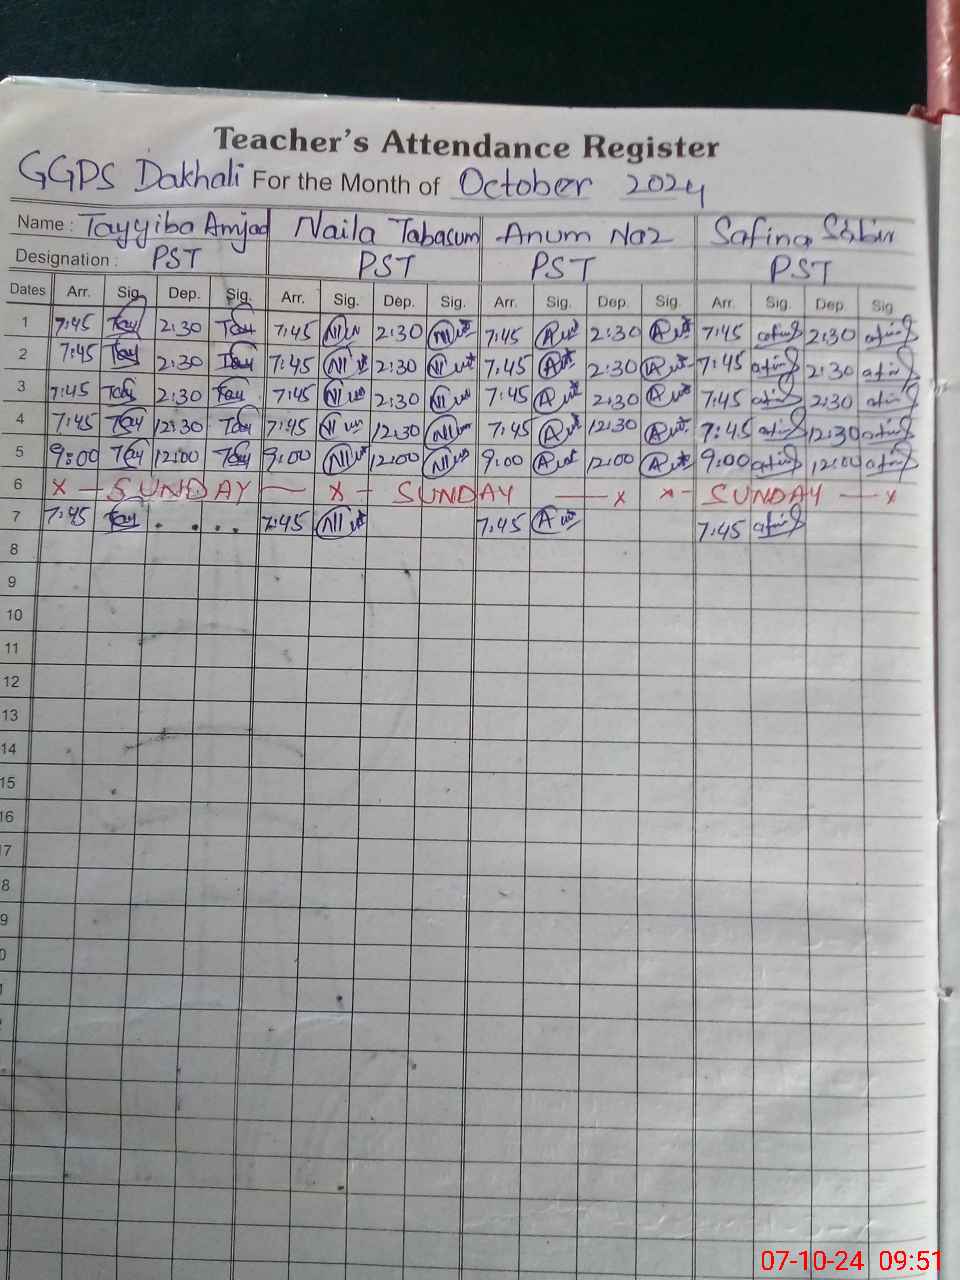 Teacher's Attendance Register
GGPS Dakhali For the Month of October 2024
Name : Tayyiba Amjad Naila Tabasum Anum Naz Safina Sabir
Designation : PST PST PST PST
Dates Arr. Sig. Dep. Sig. Arr. Sig. Dep. Sig. Arr. Sig. Dep. Sig. Arr. Sig. Dep. Sig
1 7:45 Tay 2:30 Tay 7:45 2:30 7:45 2:30 7:45 2:30
2 7:45 Tay 2:30 Tay 7:45 2:30 7:45 2:30 7:45 2:30
3 7:45 Tay 2:30 Tay 7:45 2:30 7:45 2:30 7:45 2:30
4 7:45 Tay 12:30 Tay 7:45 12:30 7:45 12:30 7:45 12:30
5 9:00 Tay 12:00 Tay 9:00 12:00 9:00 12:00 9:00 12:00
6 x - SUNDAY - x - SUNDAY - x x - SUNDAY - x
7 7:45 Tay 7:45 7:45 7:45
8
9
10
11
12
13
14
15
16
17
8
9
0
07-10-24 09:51